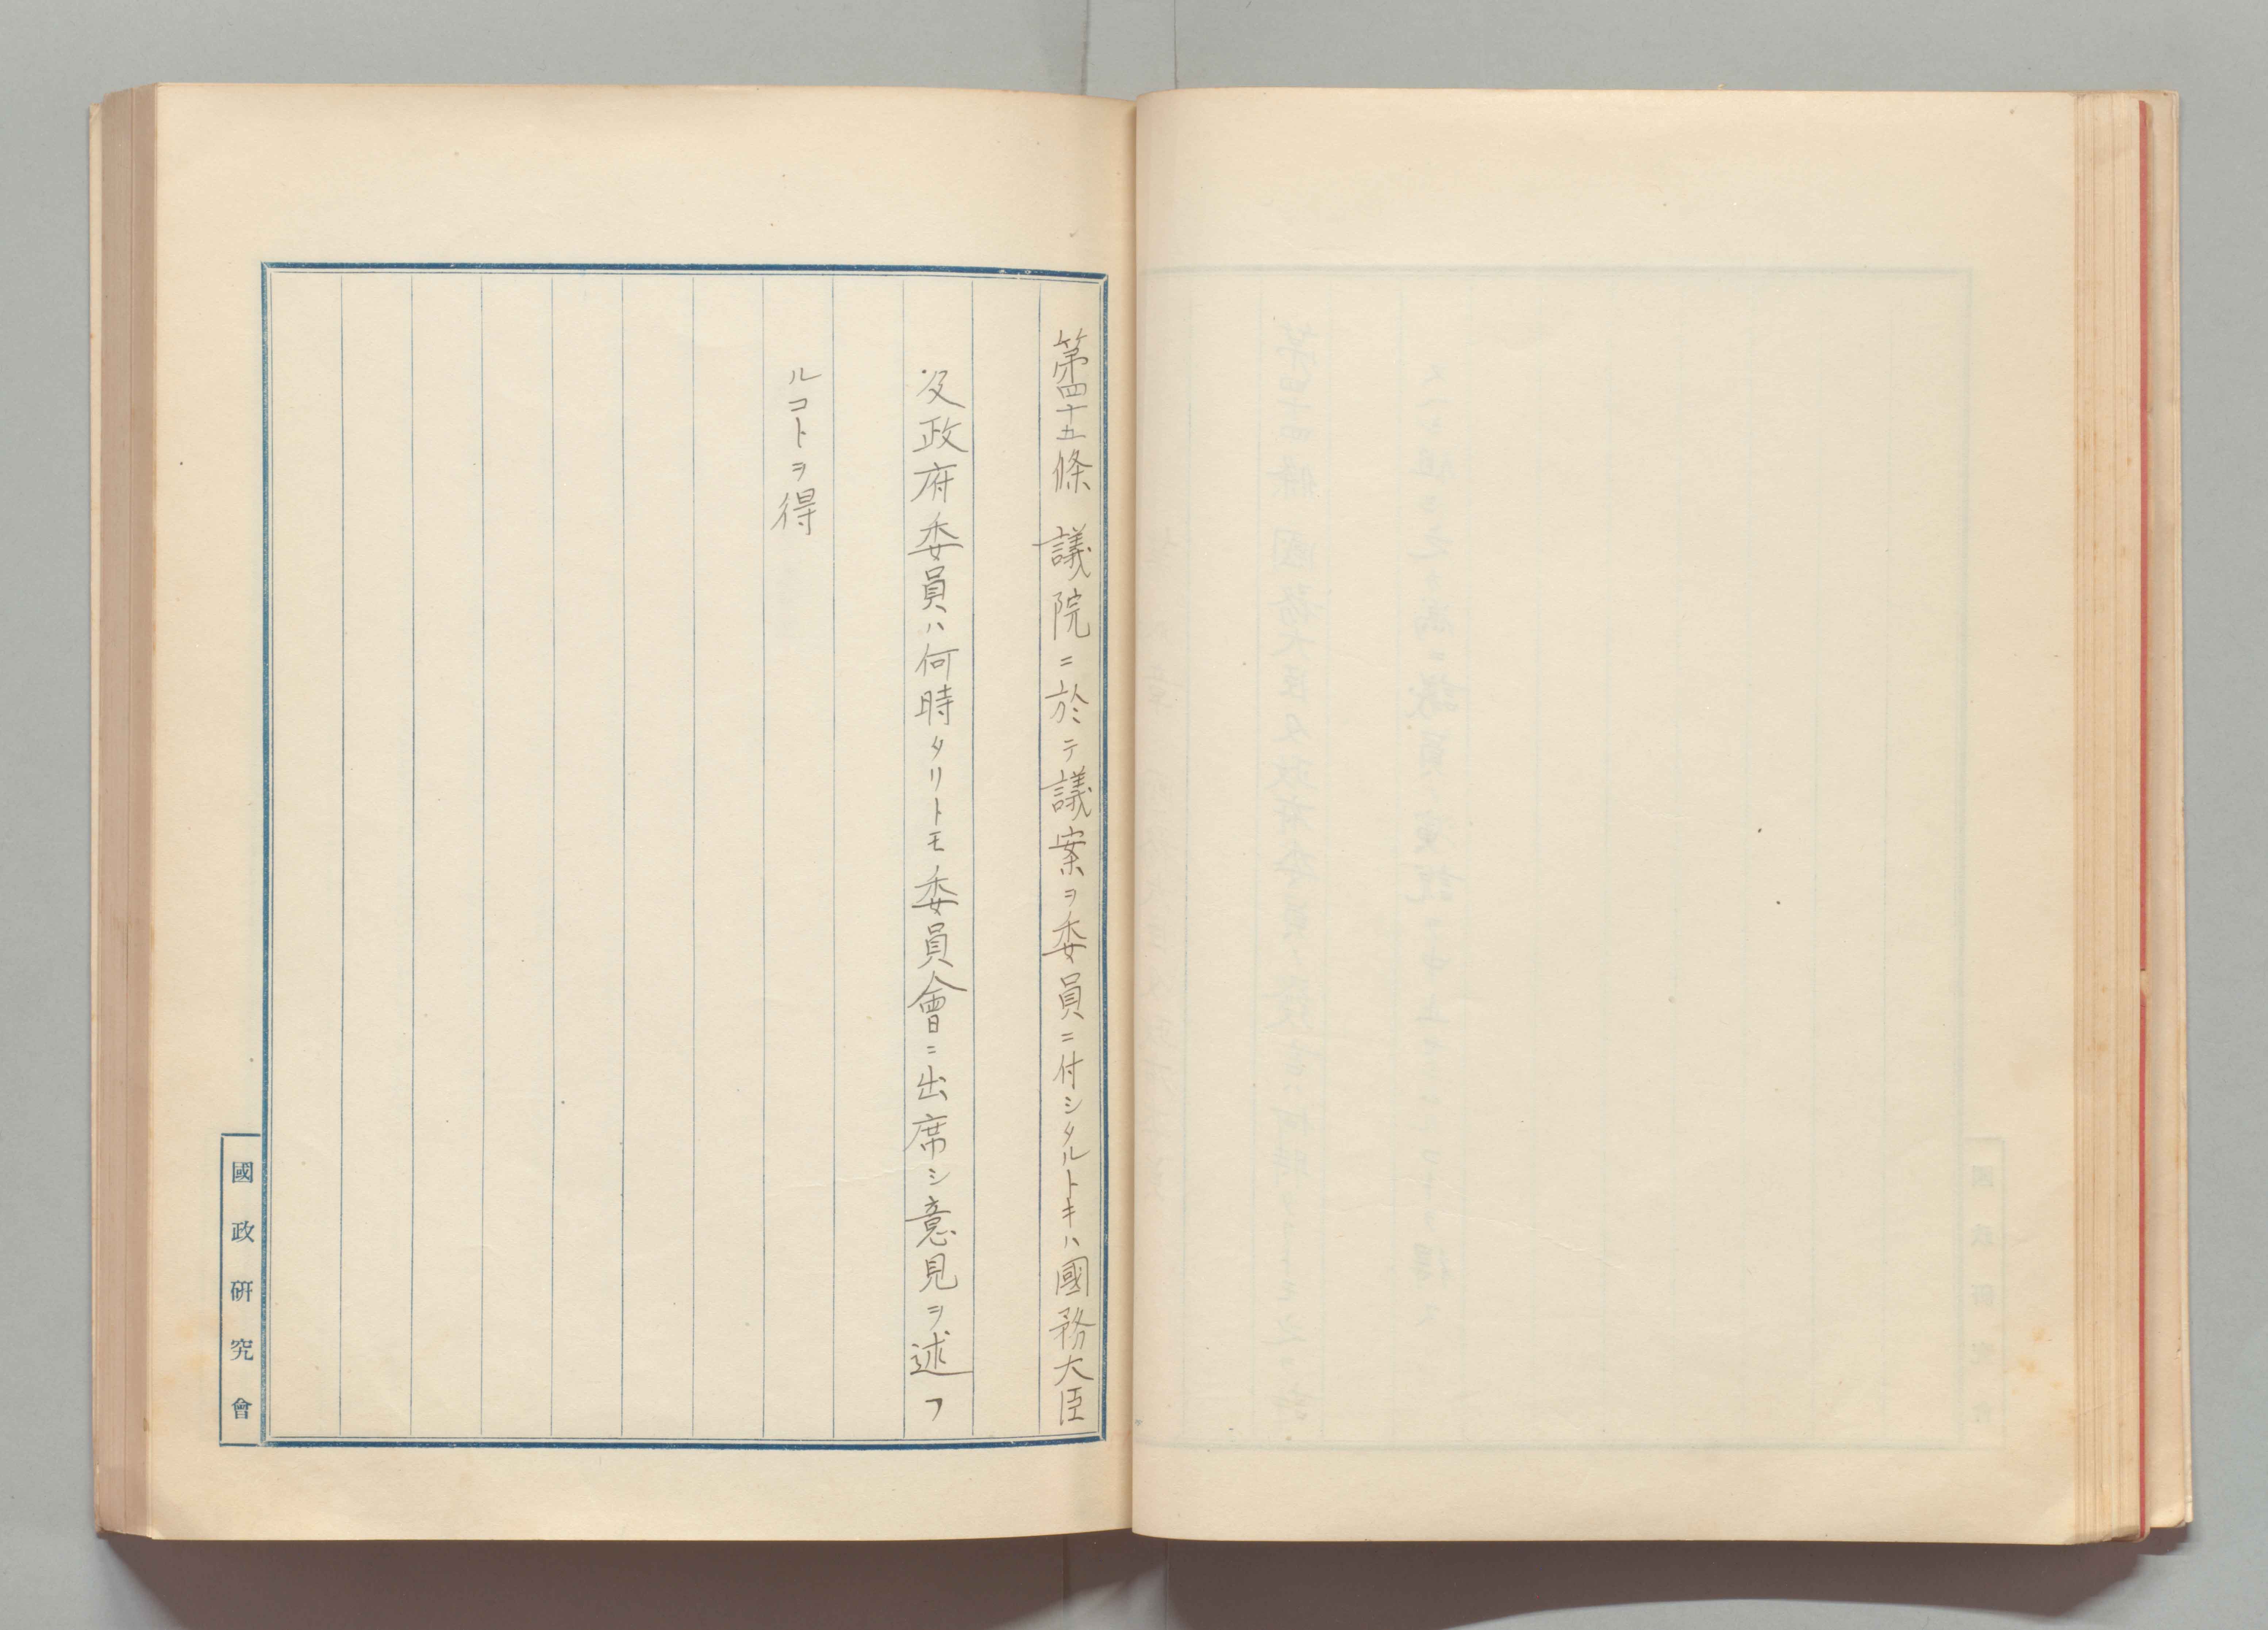 第四十五條 議院ニ於テ議案ヲ委員ニ付シタルトキハ國務大臣
及政府委員ハ何時タリトモ委員會ニ出席シ意見ヲ述フ
ルコトヲ得
國政研究會